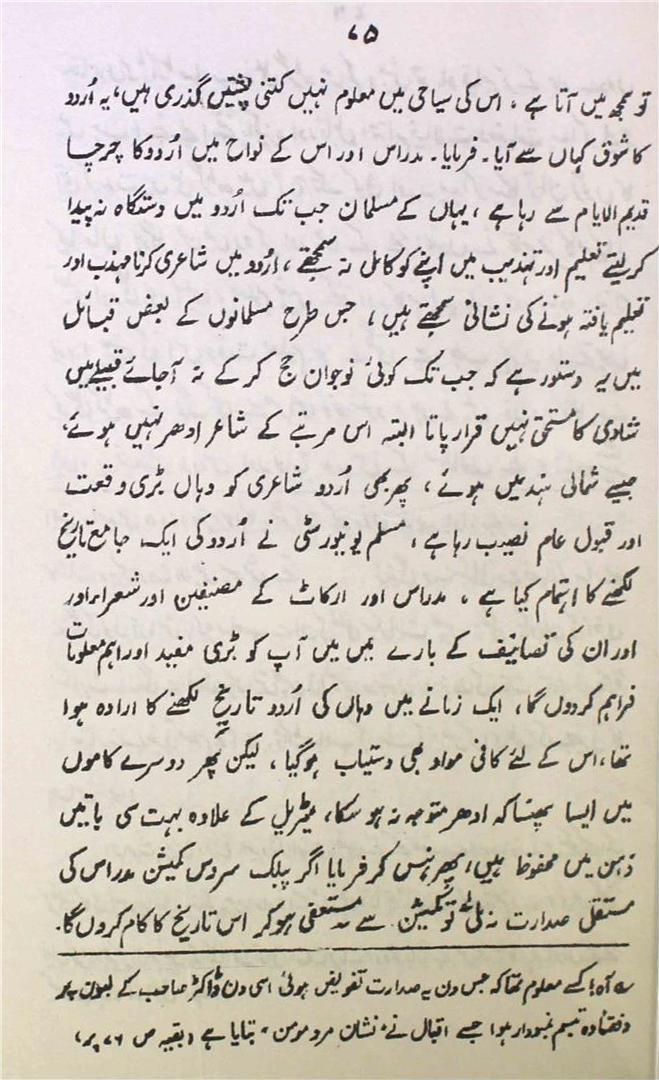 ۷۵
تو سمجھ میں آتا ہے، اس کی سیاحی میں معلوم نہیں کتنی پشتیں گذری ہیں، یہ اُردو
کا شوق کہاں سے آیا۔ فرمایا۔ مدراس اور اس کے نواح میں اُردو کا چرچا
قدیم الایام سے رہا ہے، یہاں کے مسلمان جب تک اُردو میں دستگاہ نہ پیدا
کر لیتے تعلیم اور تہذیب میں اپنے کو کامل نہ سمجھتے، اُردو میں شاعری کرنا مہذب اور
تعلیم یافتہ ہونے کی نشانی سمجھتے ہیں، جس طرح مسلمانوں کے بعض قبائل
میں یہ دستور ہے کہ جب تک کوئی نوجوان حج کر کے نہ آجائے قبیلے میں
شادی کا مستحق نہیں قرار پاتا البتہ اس مرتبے کے شاعر ادھر نہیں ہوئے،
جیسے شمالی ہند میں ہوئے، پھر بھی اُردو شاعری کو وہاں بڑی وقعت
اور قبول عام نصیب رہا ہے، مسلم یونیورسٹی نے اُردو کی ایک جامع تاریخ
لکھنے کا اہتمام کیا ہے، مدراس اور ارکاٹ کے مصنفین اور شعراء اور
اور ان کی تصانیف کے بارے میں میں آپ کو بڑی مفید اور اہم معلومات
فراہم کردوں گا، ایک زمانے میں وہاں کی اُردو تاریخ لکھنے کا ارادہ ہوا
تھا، اس کے لئے کافی مواد بھی دستیاب ہوگیا، لیکن پھر دوسرے کاموں
میں ایسا پھنسا کہ ادھر متوجہ نہ ہو سکا، میٹریل کے علاوہ بہت سی باتیں
ذہن میں محفوظ ہیں، پھر ہنس کر فرمایا اگر پبلک سروس کمیشن مدراس کی
مستقل صدارت نہ ملی تو کمیشن سے مستعفی ہو کر اس تاریخ کا کام کروں گا۔
آہ! کسے معلوم تھا کہ جس دن یہ صدارت تفویض ہوئی اسی دن ڈاکٹر صاحب کے لبوں پر
دفعتاً وہ تبسم نمودار ہوا جسے اقبال نے "نشان مرد مومن" بتایا ہے (بقیہ ص ۷۶ پر)